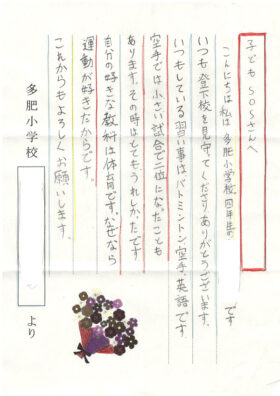 子どもSOSさんへ
こんにちは私は多肥小学校四年生の
です
いつも登下校を見守てくださりありがとうございます。
いつもしている習い事はバトミントン、空手、英語です
空手では小さい試合で二位になたことも
あります。その時はとてもうれしかたです
自分の好きな教科は体育です。なぜなら
運動が好きだからです。
これからもよろしくお願いします。
多肥小学校
より